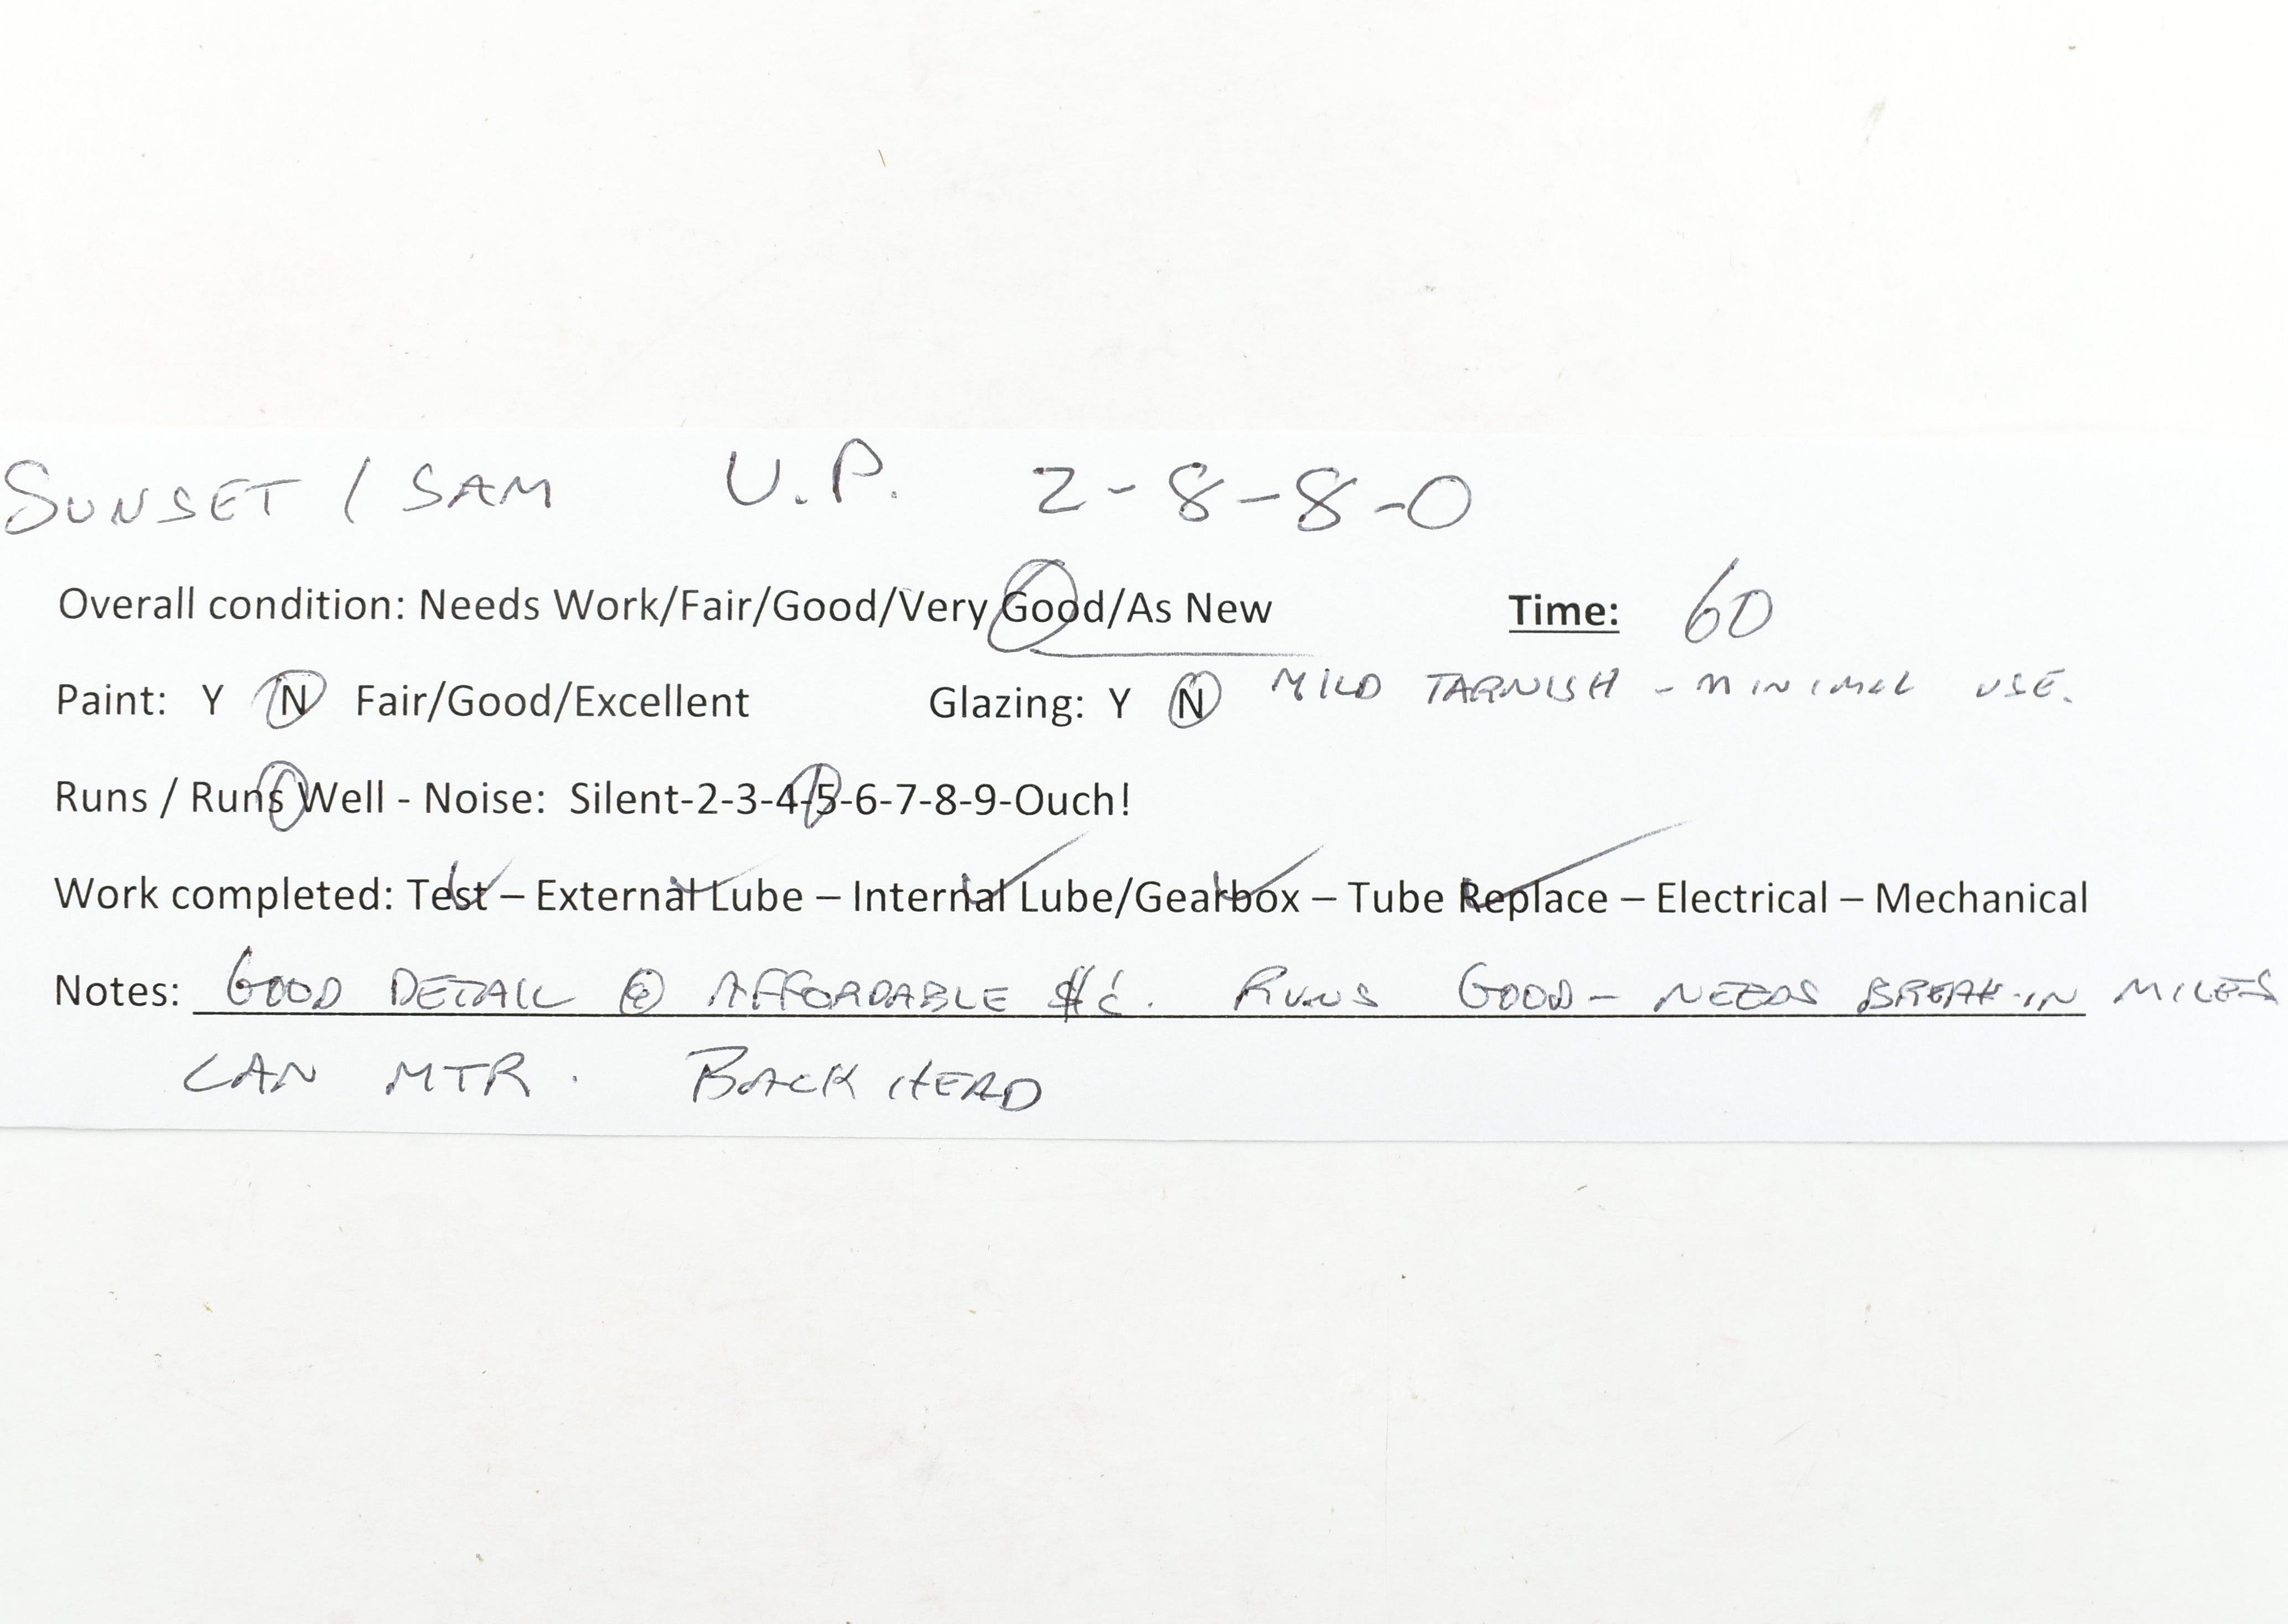 SUNSET / SAM U.P. 2-8-8-0
Overall condition: Needs Work/Fair/Good/Very Good/As New Time: 60
Paint: Y N Fair/Good/Excellent Glazing: Y N MILD TARNISH - MINIMAL USE.
Runs / Runs Well - Noise: Silent-2-3-4-5-6-7-8-9-Ouch!
Work completed: Test – External Lube – Internal Lube/Gearbox – Tube Replace – Electrical – Mechanical
Notes: GOOD DETAIL @ AFFORDABLE RUNS GOOD - NEEDS BREAK-IN MILES
CAN MTR. BACKHEAD